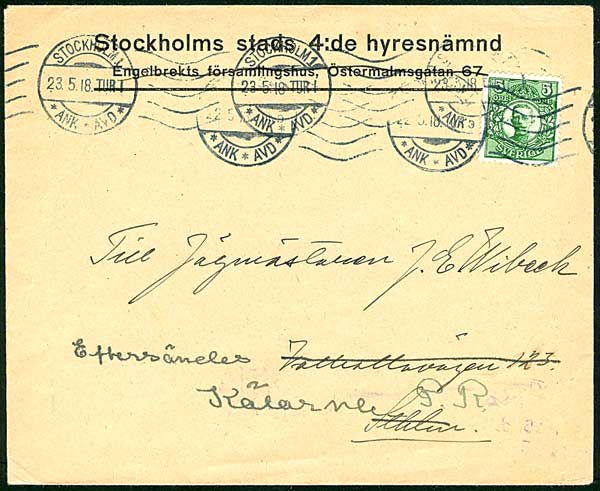 Stockholms stads 4:de hyresnämnd
Engelbrekts församlingshus, Östermalmsgatan 67
STOCKHOLM 1
23.5.18. TUR 1
* ANK * AVD *
STOCKHOLM 1
23.5.18 TUR 1
* ANK * AVD *
22.5
* ANK * AVD *
23.5.18
* ANK
22.5.18.
* ANK * AVD *
5 5
SVERIGE
Till Jägmästaren J. E. Wibeck
Eftersändes Valhallavägen 123.
Kälarne P. R.
Sthlm.